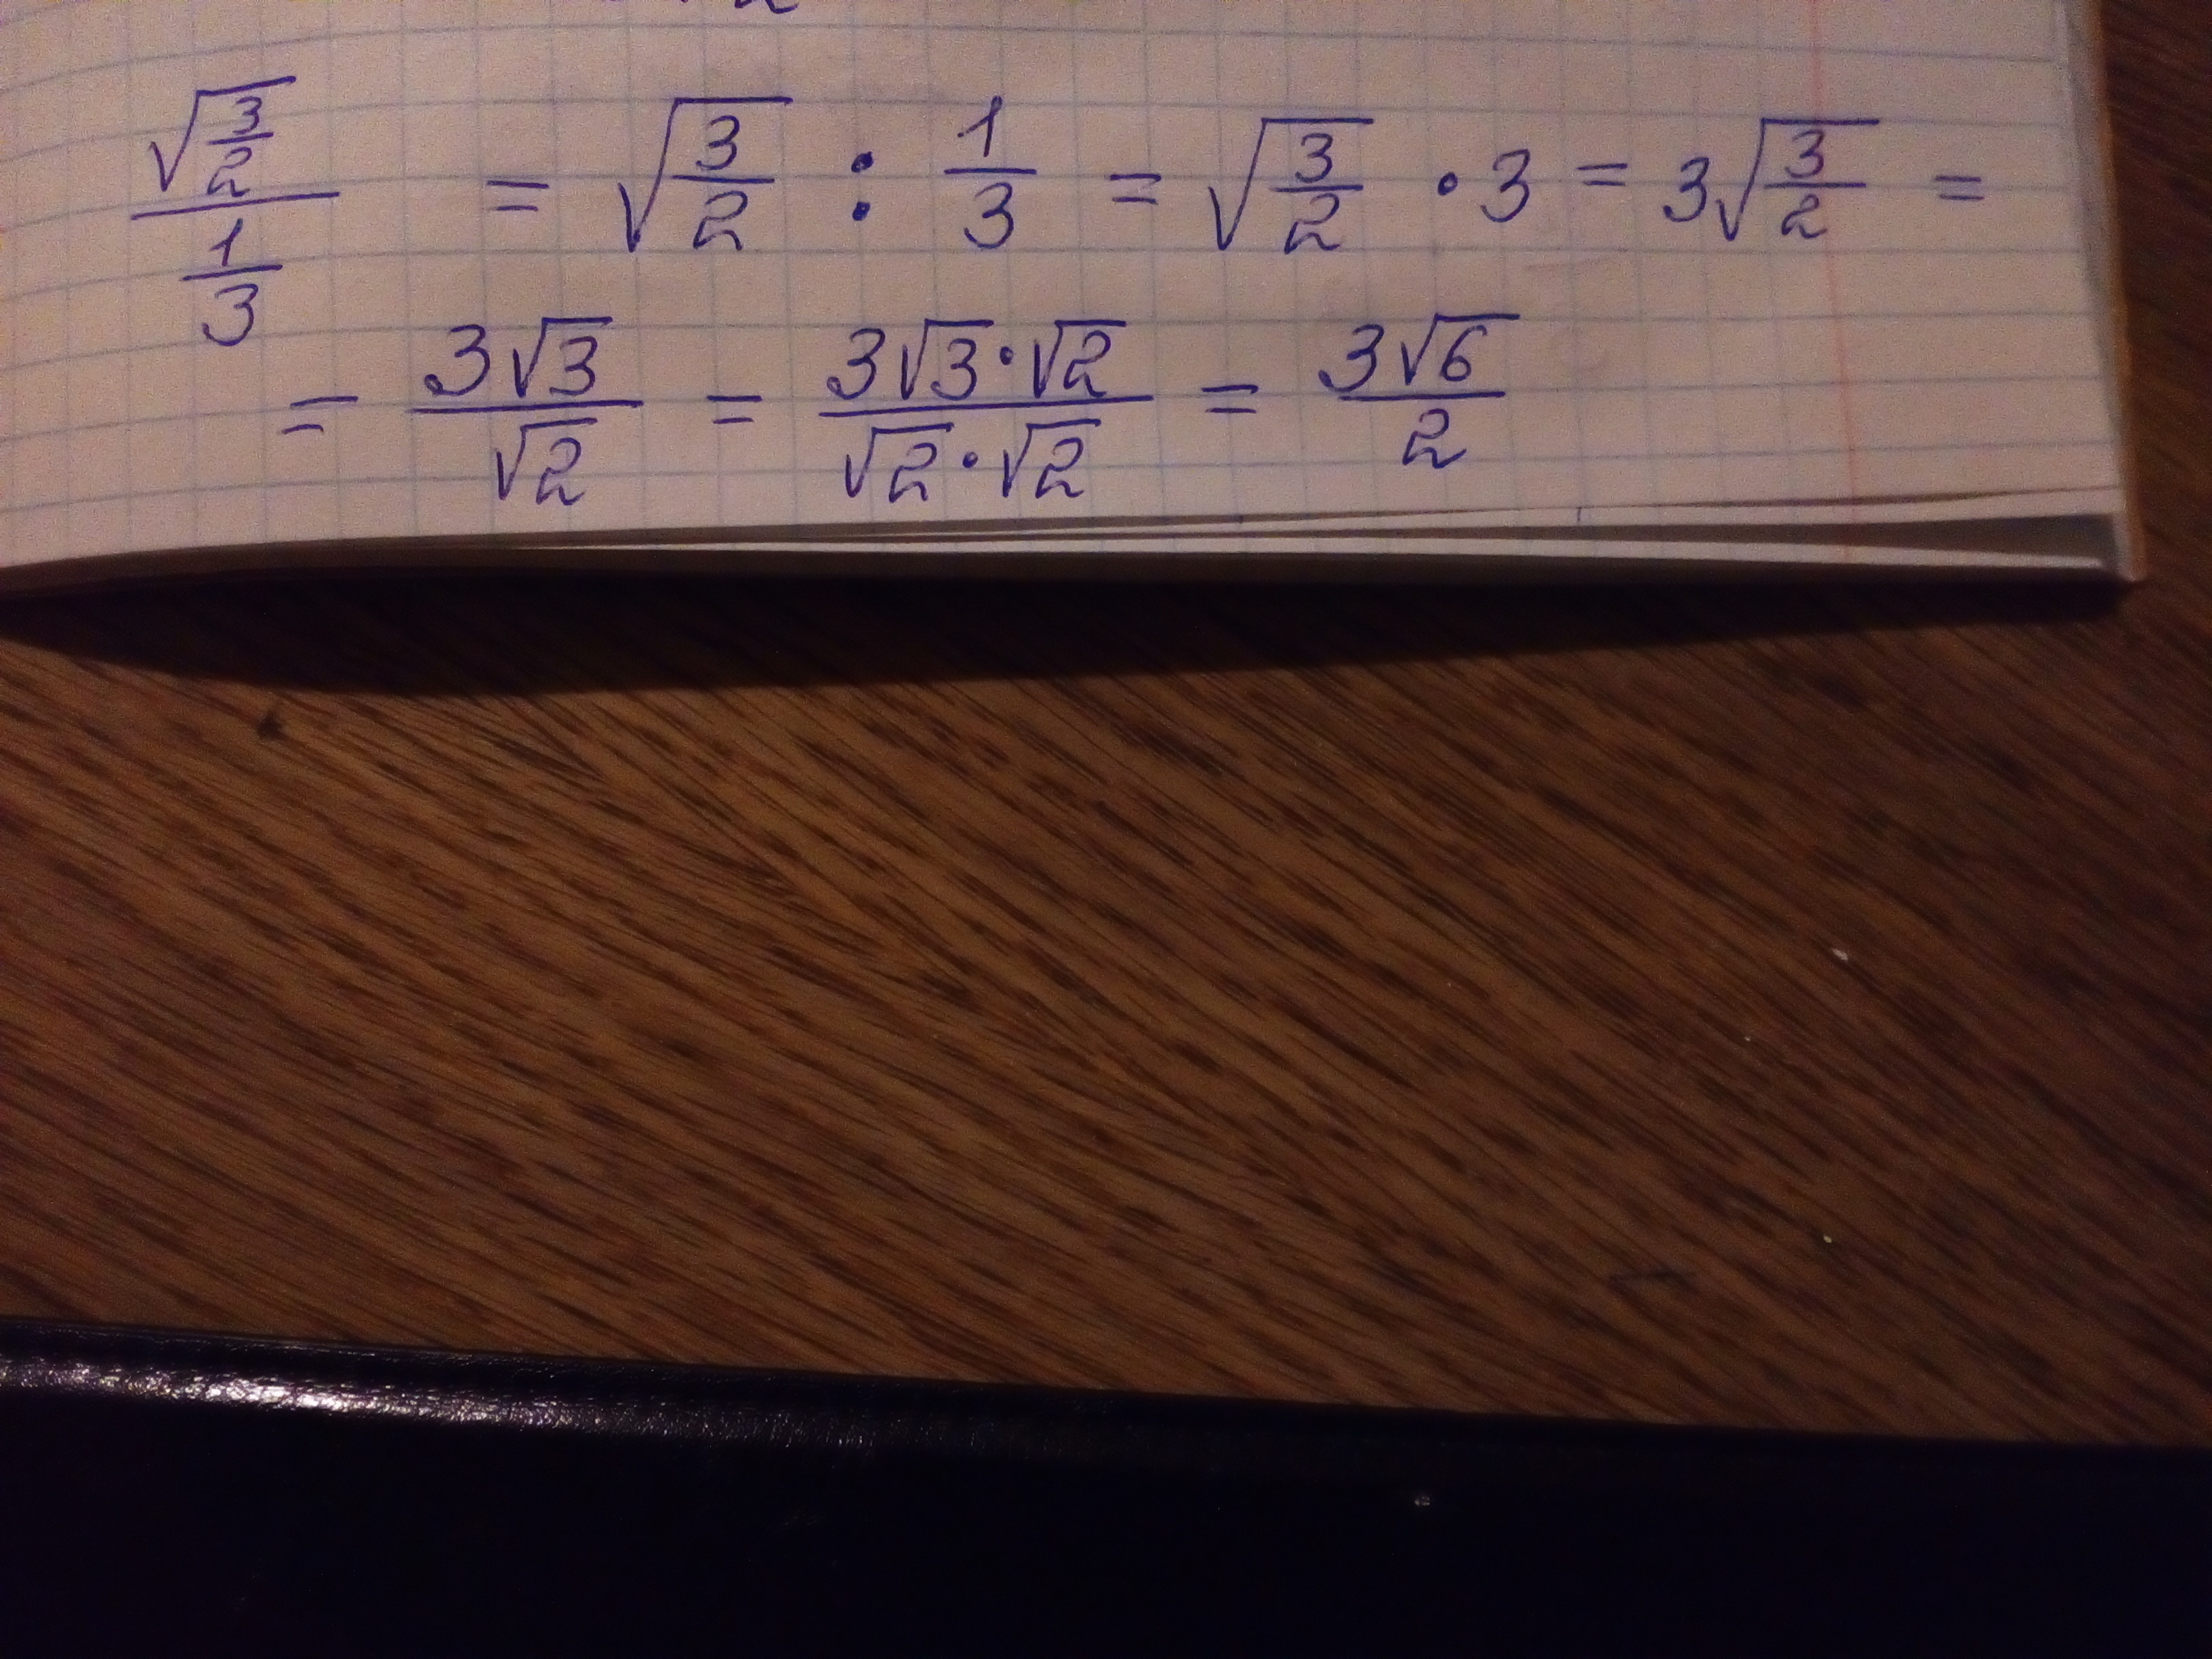 √(3/2) / (1/3) = √(3/2) : 1/3 = √(3/2) · 3 = 3√(3/2) =
= 3√3 / √2 = 3√3·√2 / √2·√2 = 3√6 / 2